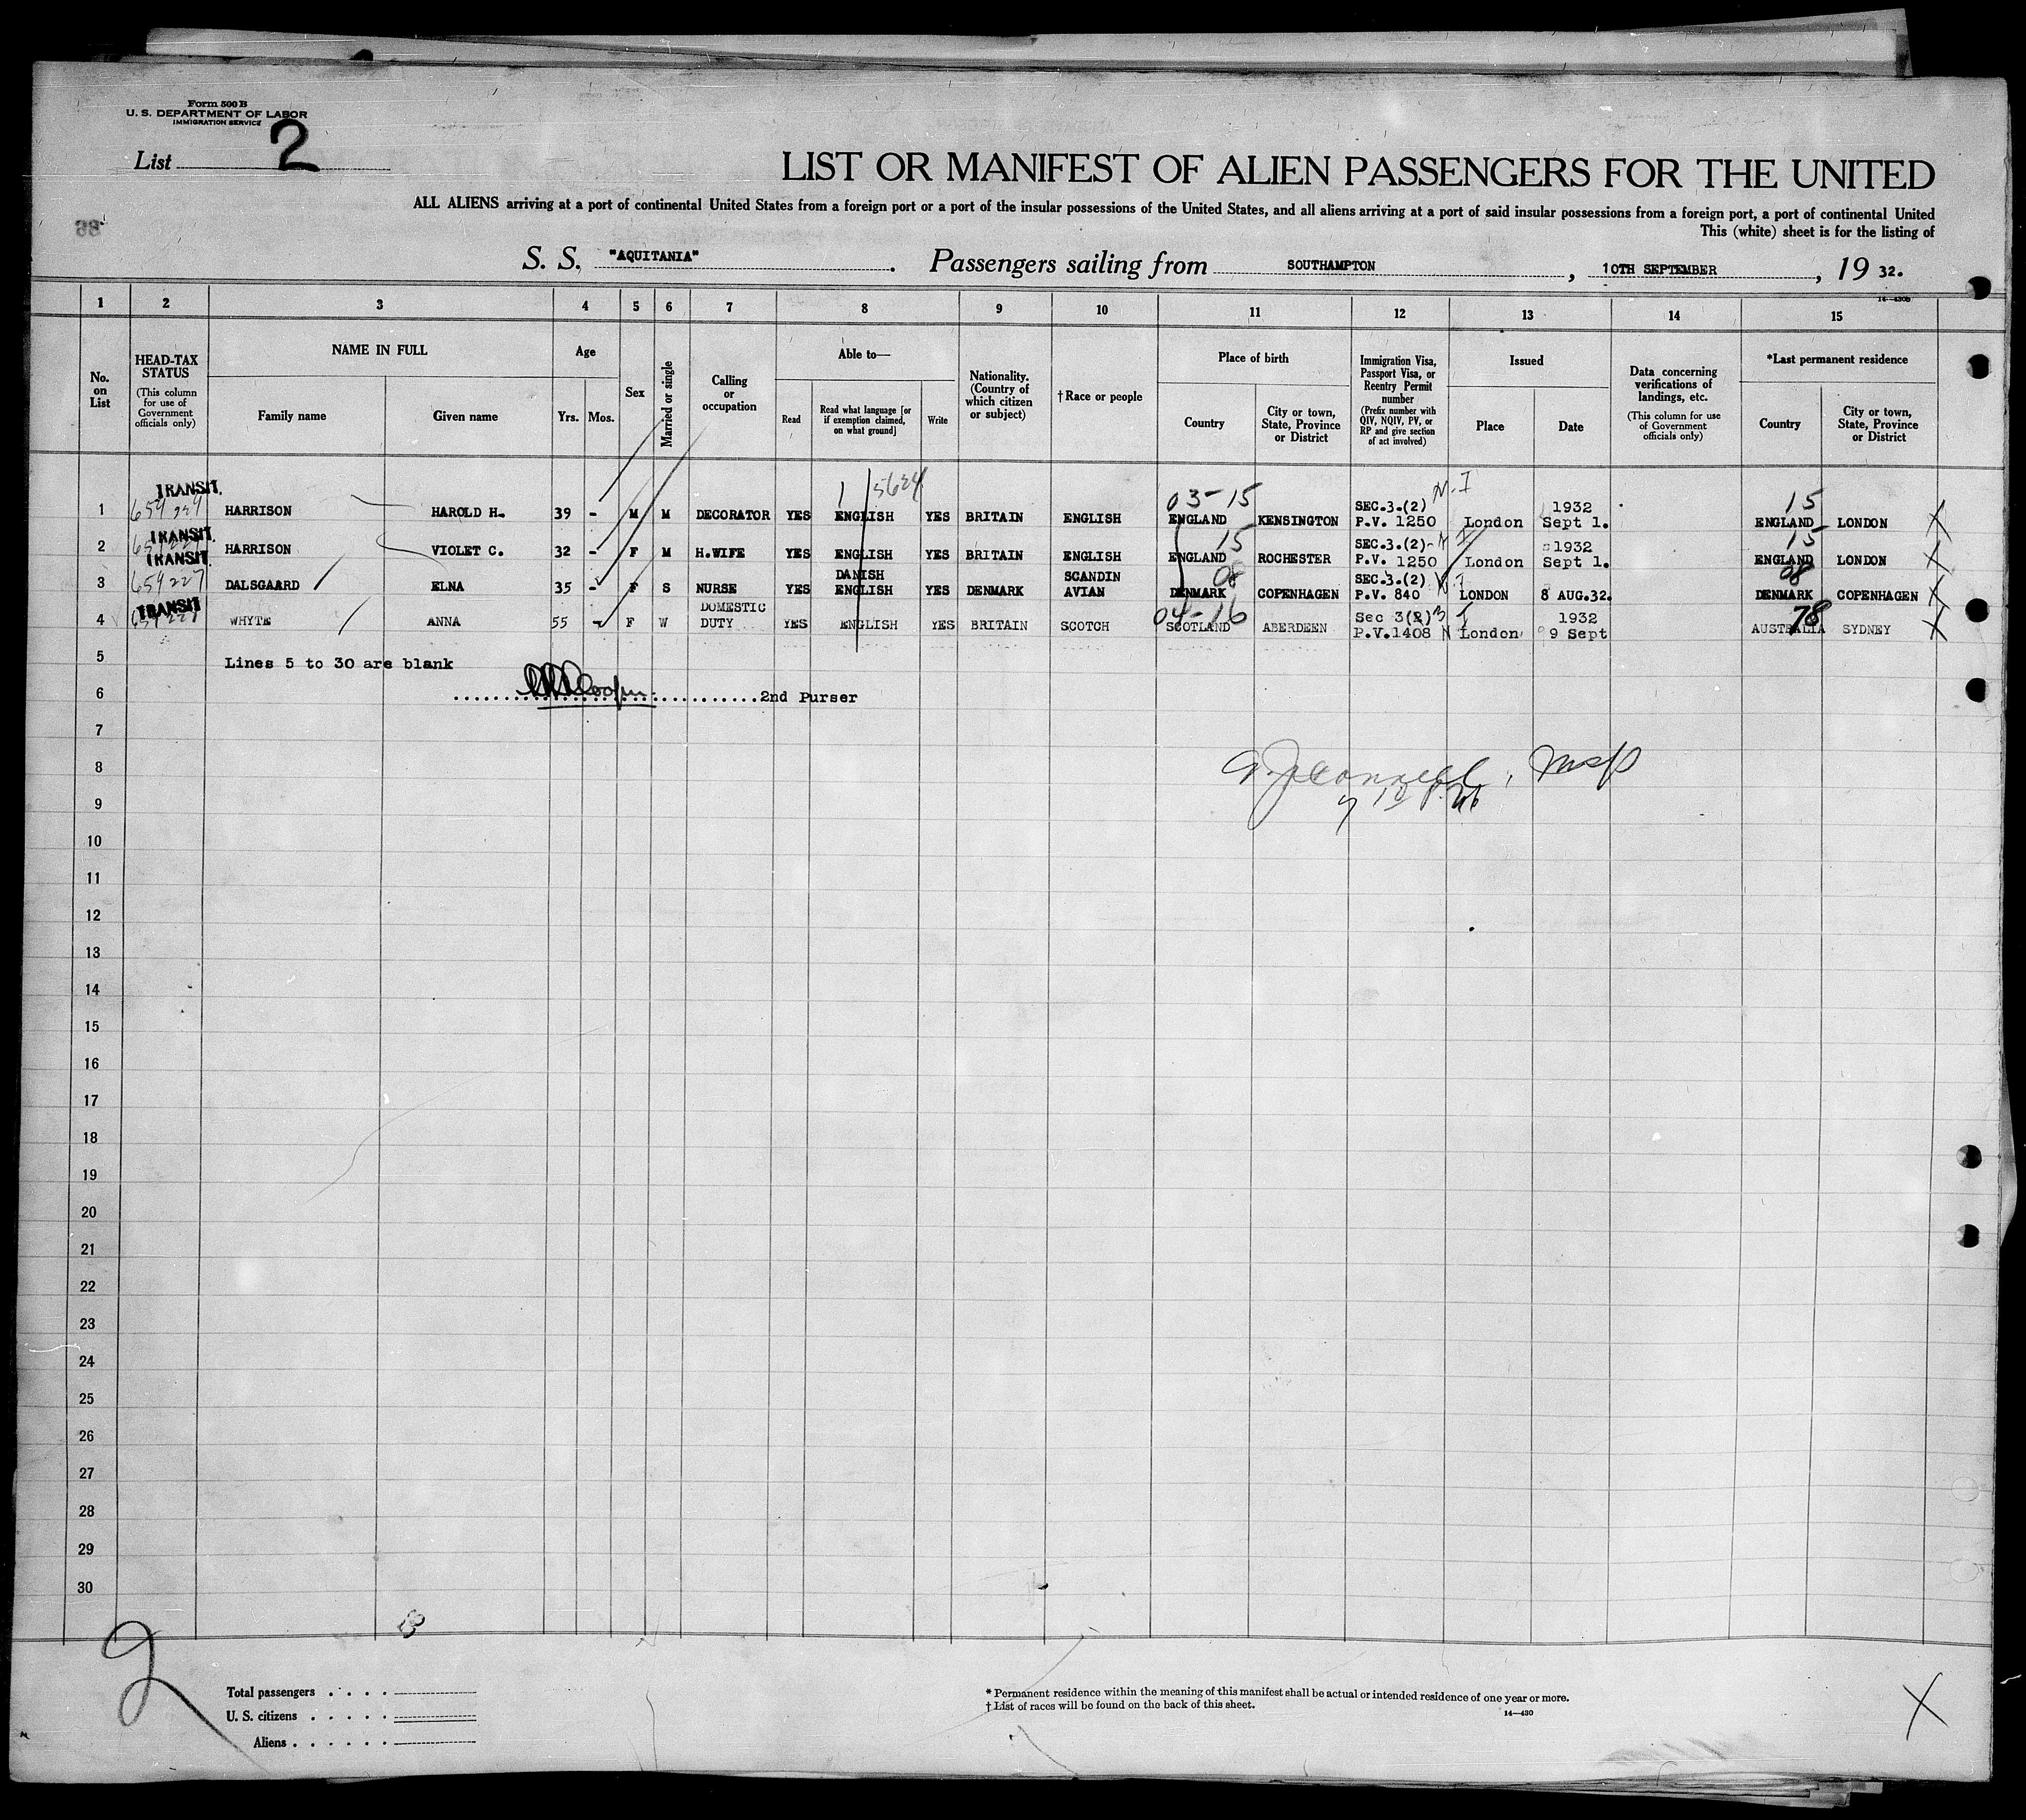 Form 500 B
U. S. DEPARTMENT OF LABOR
IMMIGRATION SERVICE
List 2
LIST OR MANIFEST OF ALIEN PASSENGERS FOR THE UNITED
ALL ALIENS arriving at a port of continental United States from a foreign port or a port of the insular possessions of the United States, and all aliens arriving at a port of said insular possessions from a foreign port, a port of continental United
This (white) sheet is for the listing of
S. S. "AQUITANIA". Passengers sailing from SOUTHAMPTON, 10TH SEPTEMBER, 19 32.
1 2 3 4 5 6 7 8 9 10 11 12 13 14 15
No. on List
HEAD-TAX STATUS
(This column for use of Government officials only)
NAME IN FULL
Family name Given name
Age
Yrs. Mos.
Sex
Married or single
Calling or occupation
Able to—
Read Read what language [or if exemption claimed, on what ground] Write
Nationality. (Country of which citizen or subject)
†Race or people
Place of birth
Country City or town, State, Province or District
Immigration Visa, Passport Visa, or Reentry Permit number
(Prefix number with QIV, NQIV, PV, or RP and give section of act involved)
Issued
Place Date
Data concerning verifications of landings, etc.
(This column for use of Government officials only)
*Last permanent residence
Country City or town, State, Province or District
TRANSIT 5624 03-15 SEC.3.(2) N.I 1932 15
1 HARRISON HAROLD H. 39 - M M DECORATOR YES ENGLISH YES BRITAIN ENGLISH ENGLAND KENSINGTON P.V. 1250 London Sept 1. ENGLAND LONDON X
TRANSIT 15 SEC.3.(2) 1932 15
2 HARRISON VIOLET C. 32 - F M H.WIFE YES ENGLISH YES BRITAIN ENGLISH ENGLAND ROCHESTER P.V. 1250 London Sept 1. ENGLAND LONDON X
TRANSIT DANISH SCANDIN 08 SEC.3.(2) N.I 08
3 654227 DALSGAARD ELNA 35 - F S NURSE YES ENGLISH YES DENMARK AVIAN DENMARK COPENHAGEN P.V. 840 LONDON 8 AUG.32. DENMARK COPENHAGEN X
TRANSIT DOMESTIC 04-16 Sec 3(2)3 I 1932 78
4 WHYTE ANNA 55 - F W DUTY YES ENGLISH YES BRITAIN SCOTCH SCOTLAND ABERDEEN P.V.1408 N London 9 Sept AUSTRALIA SYDNEY X
5 Lines 5 to 30 are blank
6 2nd Purser
7
8
9
10
11
12
13
14
15
16
17
18
19
20
21
22
23
24
25
26
27
28
29
30
2
Total passengers
U. S. citizens
Aliens
* Permanent residence within the meaning of this manifest shall be actual or intended residence of one year or more.
† List of races will be found on the back of this sheet.
14—430
X